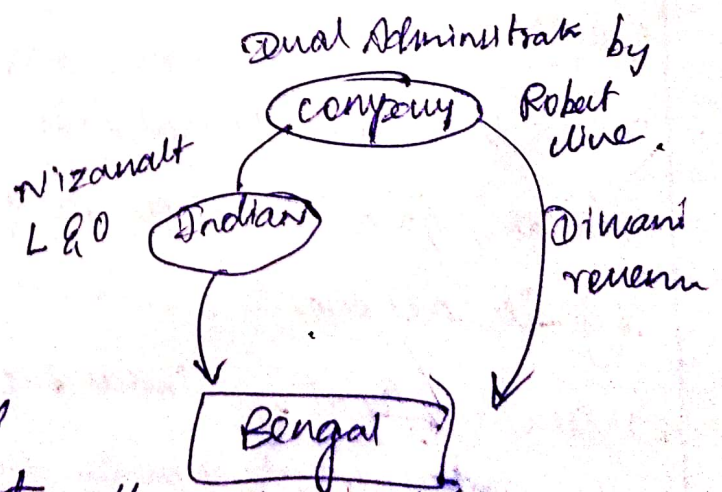 Dual Administrat by
Robert
Clive.
Company
Nizamatt
L & O
Indian
Diwani
revenu
Bengal